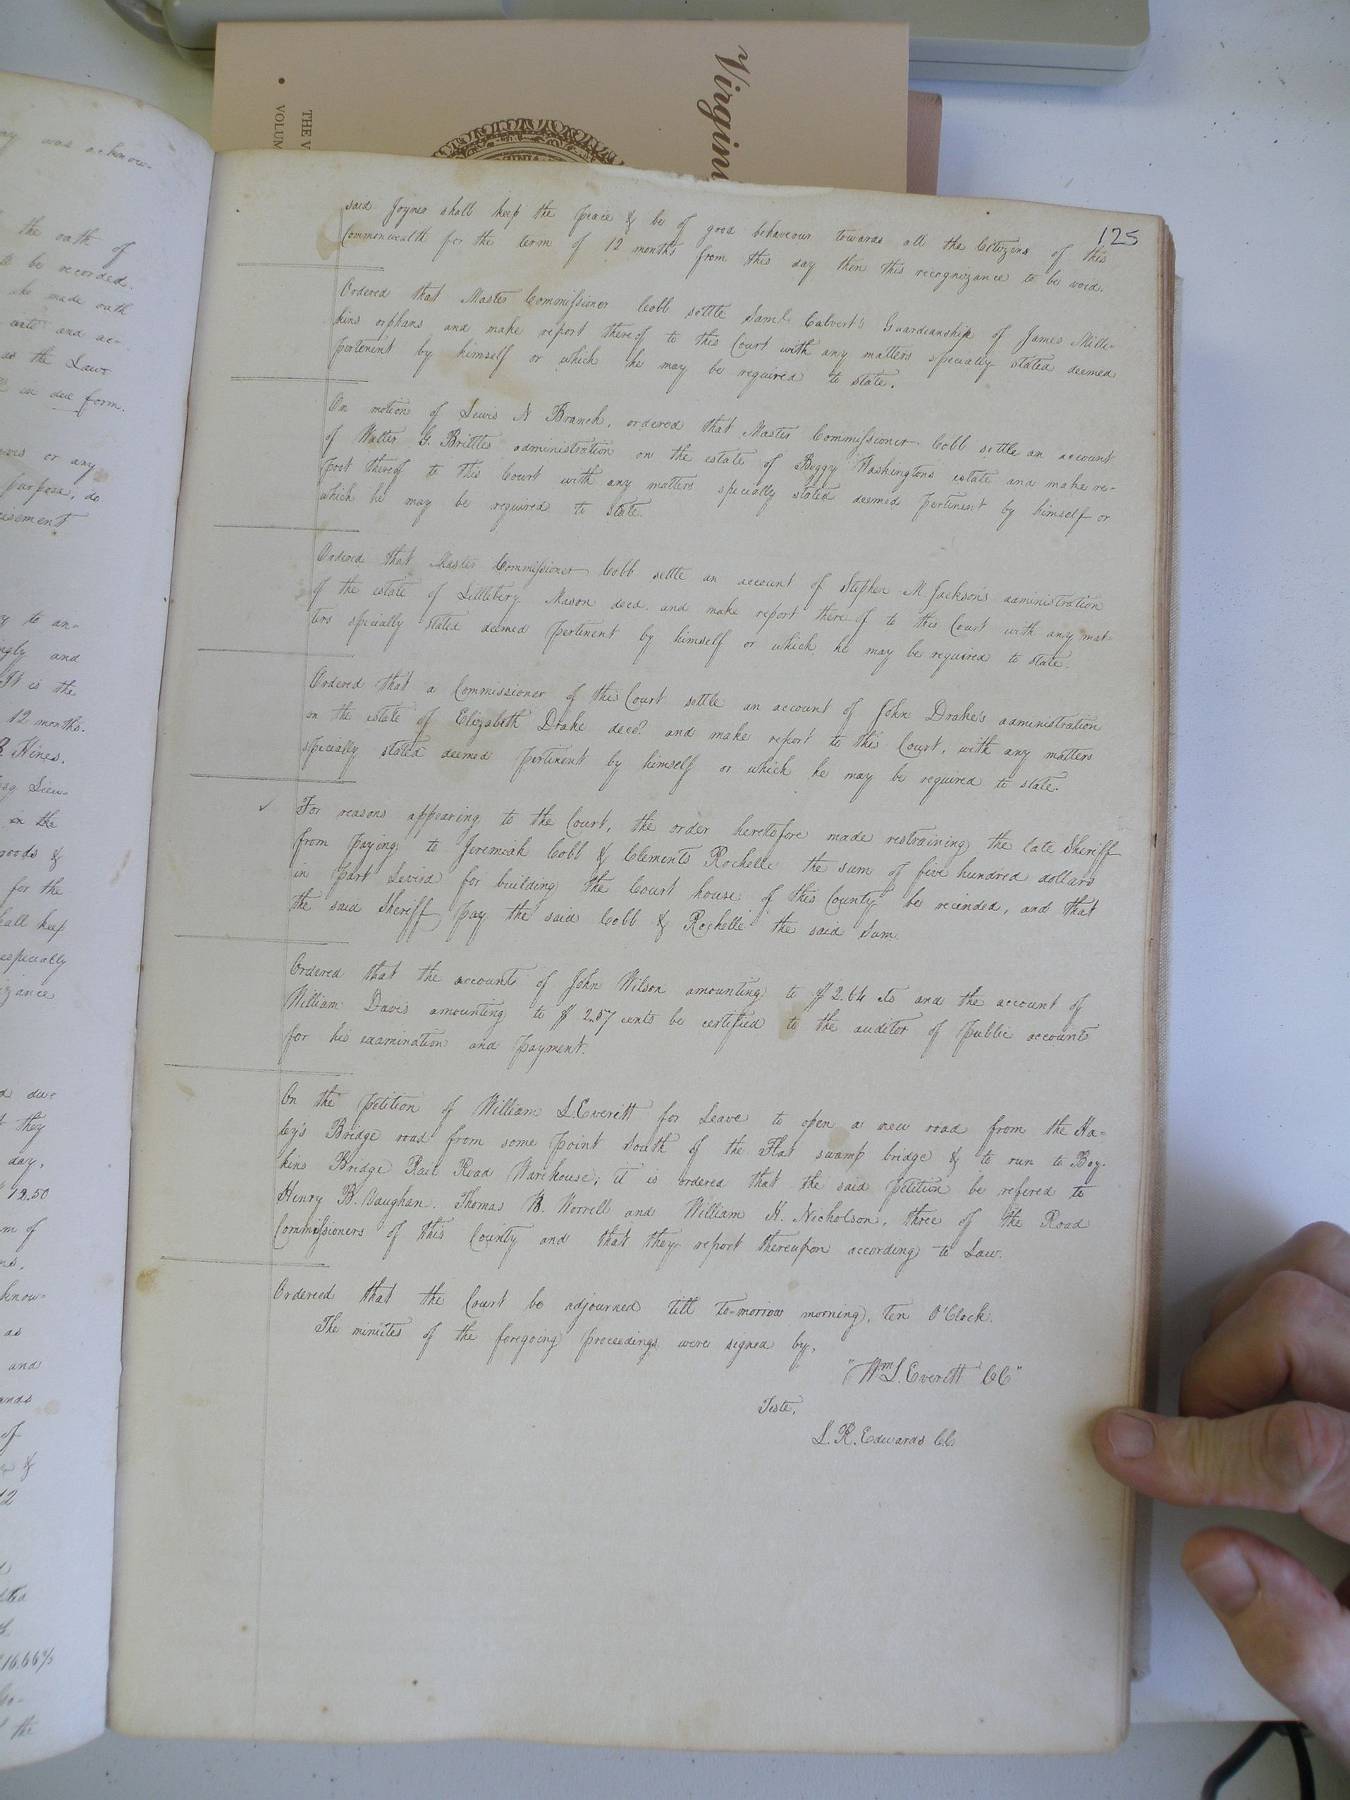 Virgin
THE V
VOLUM
125
ny was acknow-
the oath of
to be recorded.
she made oath
cate and ac-
as the Laws
in due form.
or any
purpose, do
isement
y to an-
ngly and
It is the
12 months.
Hines.
in the
goods &
for the
shall keep
especially
izance
due
they
day,
12.50
m of
know-
as
and
ands
of
&
12
16.66⅔
the
said Joyner shall keep the peace & be of good behaviour towards all the Citizens of this
Commonwealth for the term of 12 months from this day then this recognizance to be void.
Ordered that Master Commissioner Cobb settle Saml. Calvert's Guardianship of James Mille-
kins orphans and make report thereof to this Court with any matters specially stated deemed
pertenent by himself or which he may be required to state.
On motion of Lewis N Branch, ordered that Master Commissioner Cobb settle an account
of Walter G. Brittles administration on the estate of Washingtons estate and make re-
port thereof to this Court with any matters specially stated deemed pertinent by himself or
which he may be required to state.
Ordered that Master Commissioner Cobb settle an account of Stephen M. Jackson's administration
of the estate of Littlebery Mason decd. and make report there of to this Court with any mat-
ters specially stated deemed pertinent by himself or which he may be required to state.
Ordered that a Commissioner of this Court settle an account of John Drake's administration
on the estate of Elizabeth Drake decd. and make report to this Court, with any matters
specially stated deemed pertinent by himself or which he may be required to state.
✓ For reasons appearing to the Court, the order heretofore made restraining the late Sheriff
from paying to Jeremiah Cobb & Clements Rochelle the sum of five hundred dollars
in part Levied for building the Court house of this County be recinded, and that
the said Sheriff pay the said Cobb & Rochelle the said Sum.
Ordered that the accounts of John Wilson amounting to $2.64 cts and the account of
William Davis amounting to $2.57 cents be certified to the auditor of Public accounts
for his examination and payment.
On the petition of William L. Everitt for Leave to open a new road from the Ha-
ley's Bridge road from some point South of the Flat swamp bridge & to run to Boy-
kins Bridge Rail Road Warehouse; it is ordered that the said petition be refered to
Henry B. Vaughan. Thomas W. Worrell and William H. Nicholson, three of the Road
Commissioners of this County and that they report thereupon according to Law.
Ordered that the Court be adjourned till to-morrow morning, ten O'Clock.
The minutes of the foregoing proceedings were signed by,
"Wm L. Everitt CC"
Teste,
L. R. Edwards CC